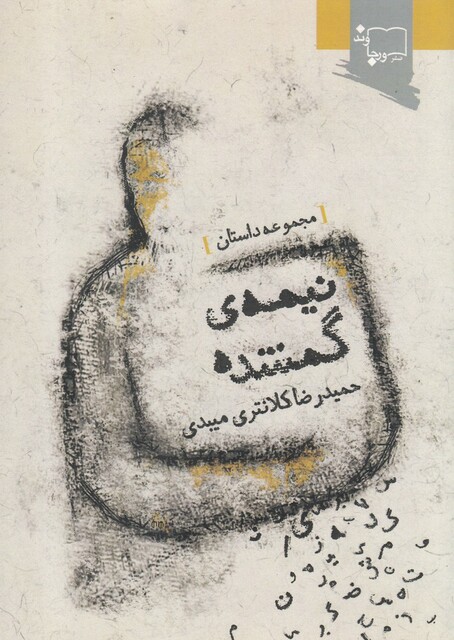 نشر
ورجاوند
[مجموعه داستان]
نیمه‌ی
گمشده
حمیدرضا کلانتری میبدی